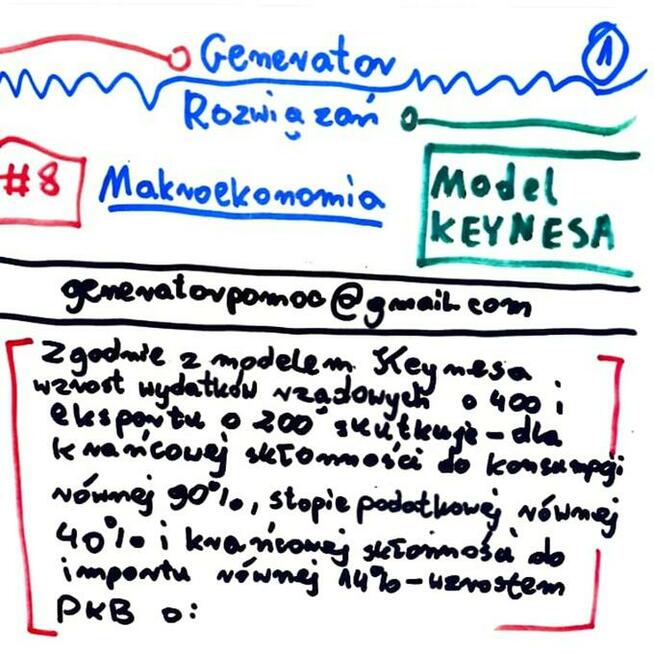 Generator
1
Rozwiązań
#8
Makroekonomia
Model
KEYNESA
generatorpomoc@gmail.com
Zgodnie z modelem Keynesa
wzrost wydatków rządowych o 400 i
eksportu o 200 skutkuje - dla
krańcowej skłonności do konsumpcji
równej 90%, stopie podatkowej równej
40% i krańcowej skłonności do
importu równej 14% - wzrostem
PKB o: